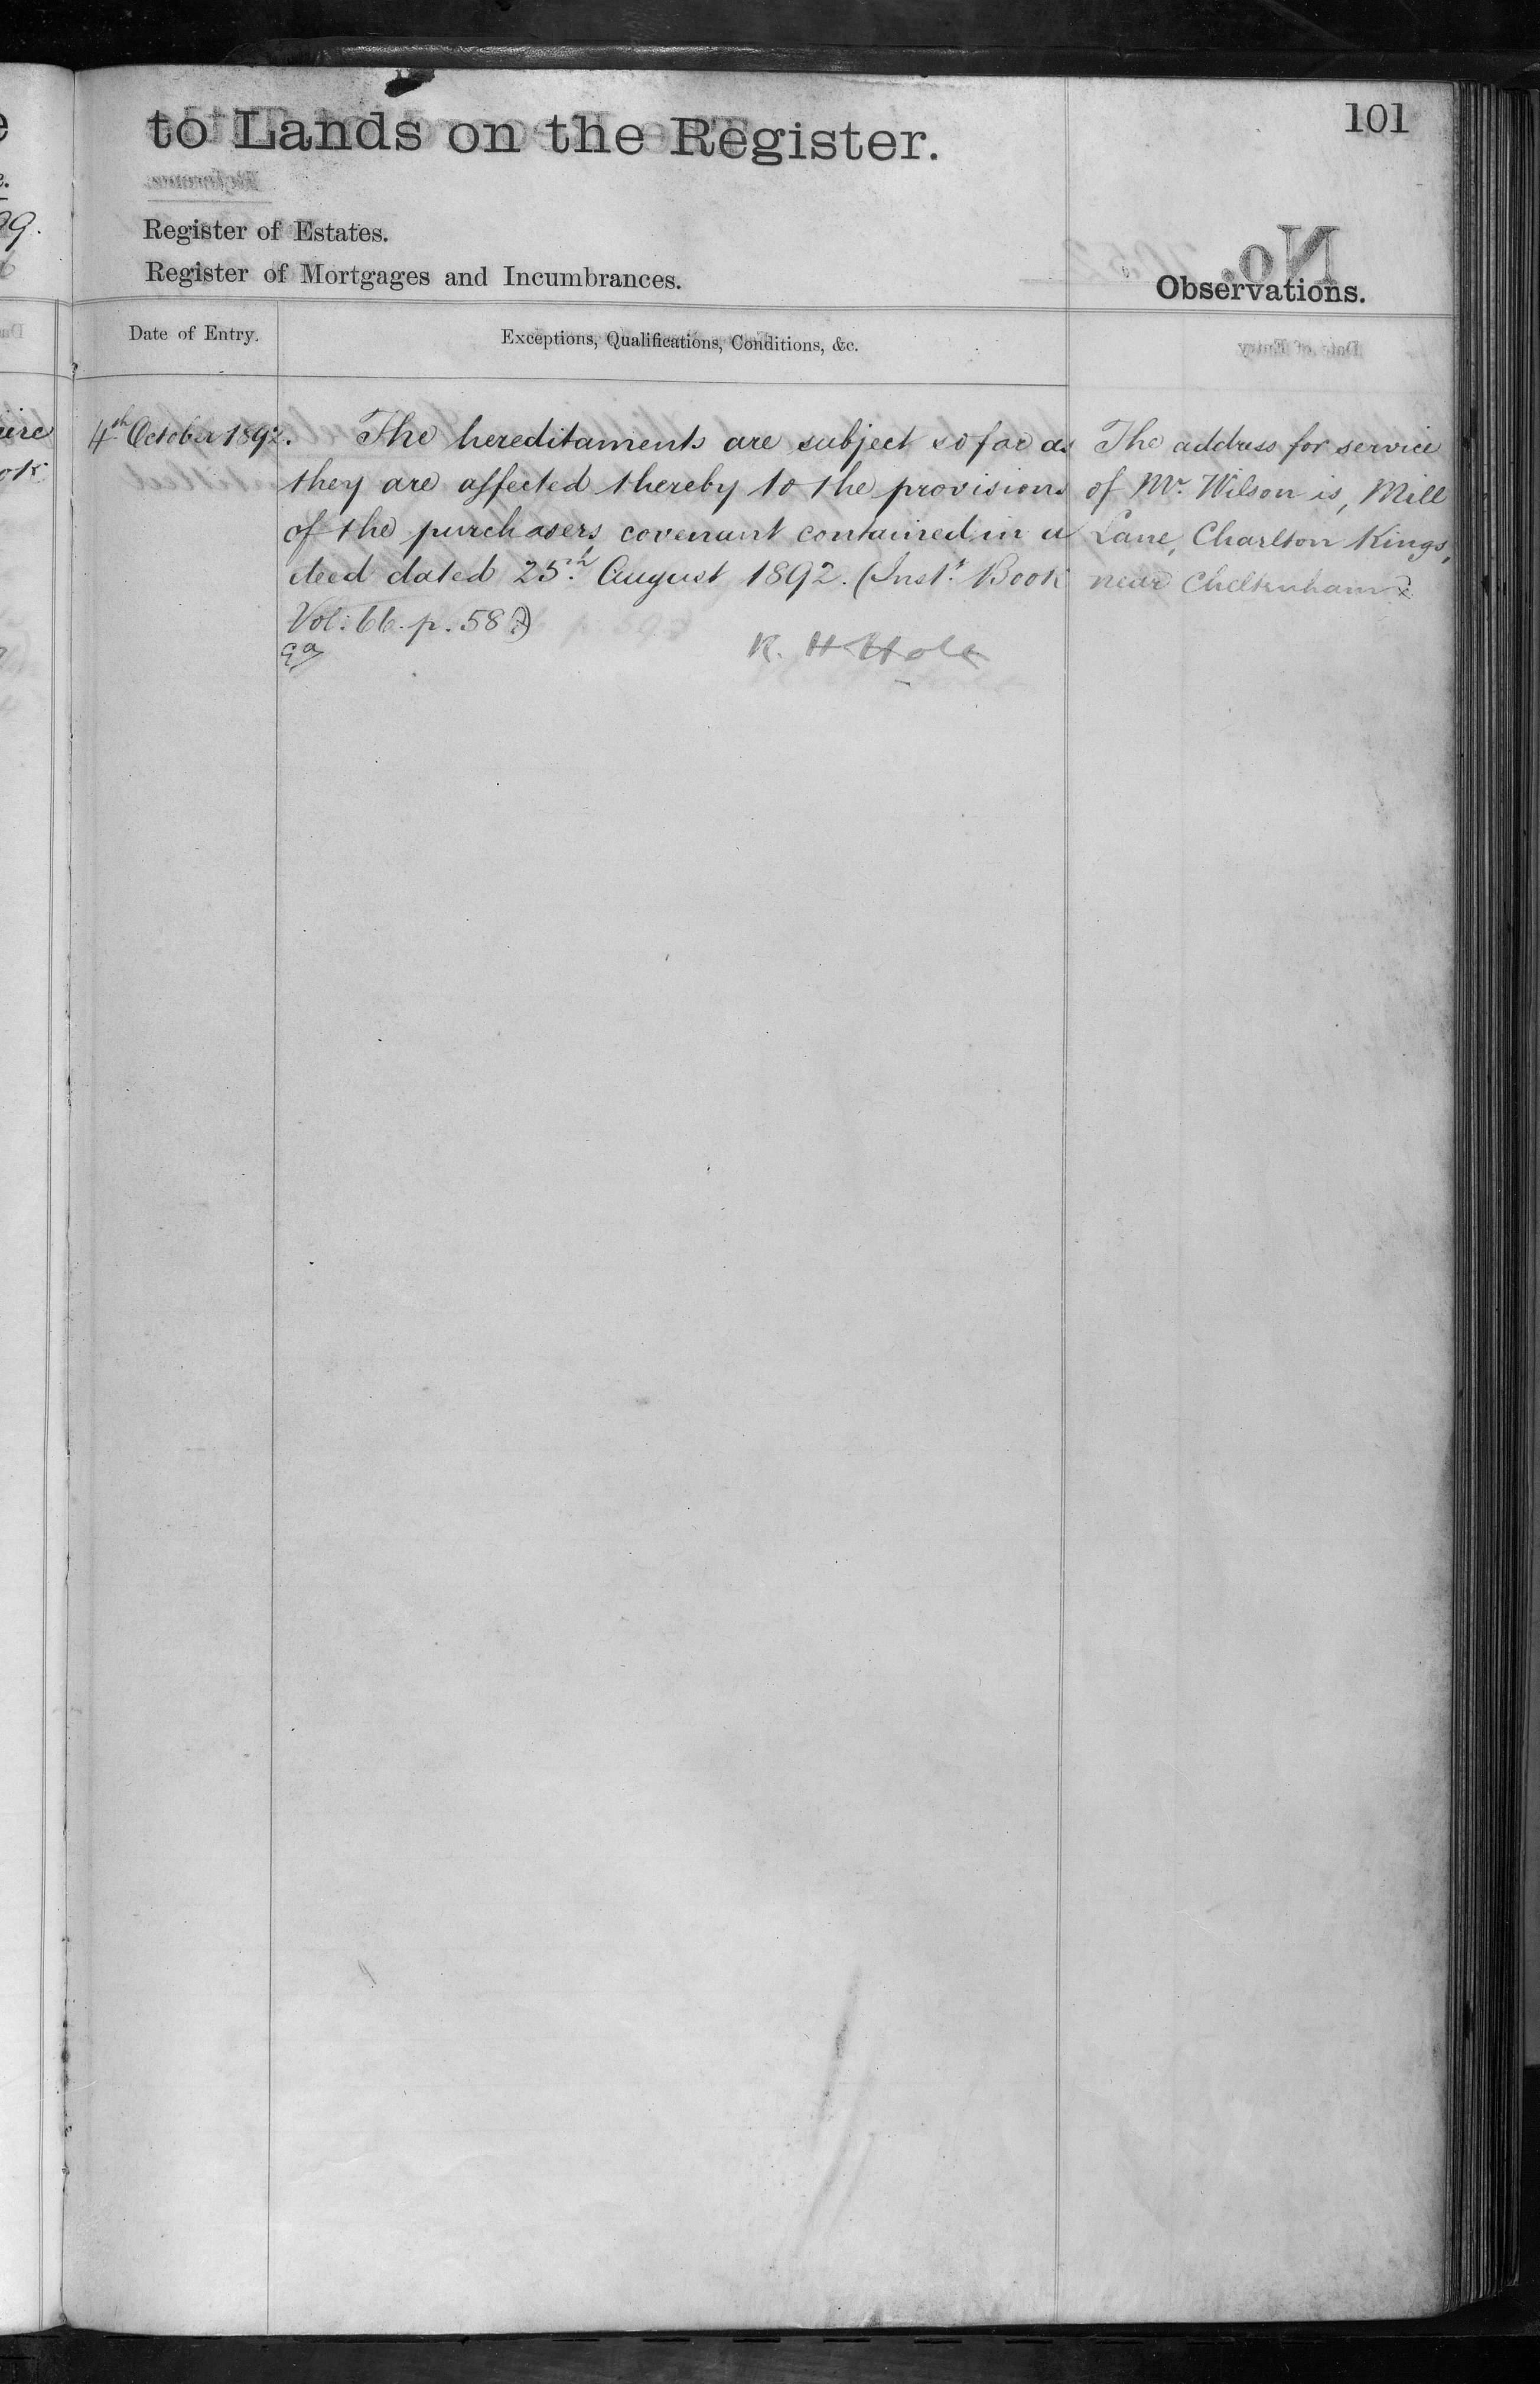 101
to Lands on the Register.
Register of Estates.
Register of Mortgages and Incumbrances.
Observations.
Date of Entry.
Exceptions, Qualifications, Conditions, &c.
4th October 1892.
The hereditaments are subject so far as
they are affected thereby to the provisions
of the purchasers covenant contained in a
deed dated 25th August 1892. (Inst. Book
Vol: 66. p. 587)
The address for service
of Mr. Wilson is, Mill
Lane, Charlton Kings,
near Cheltenham